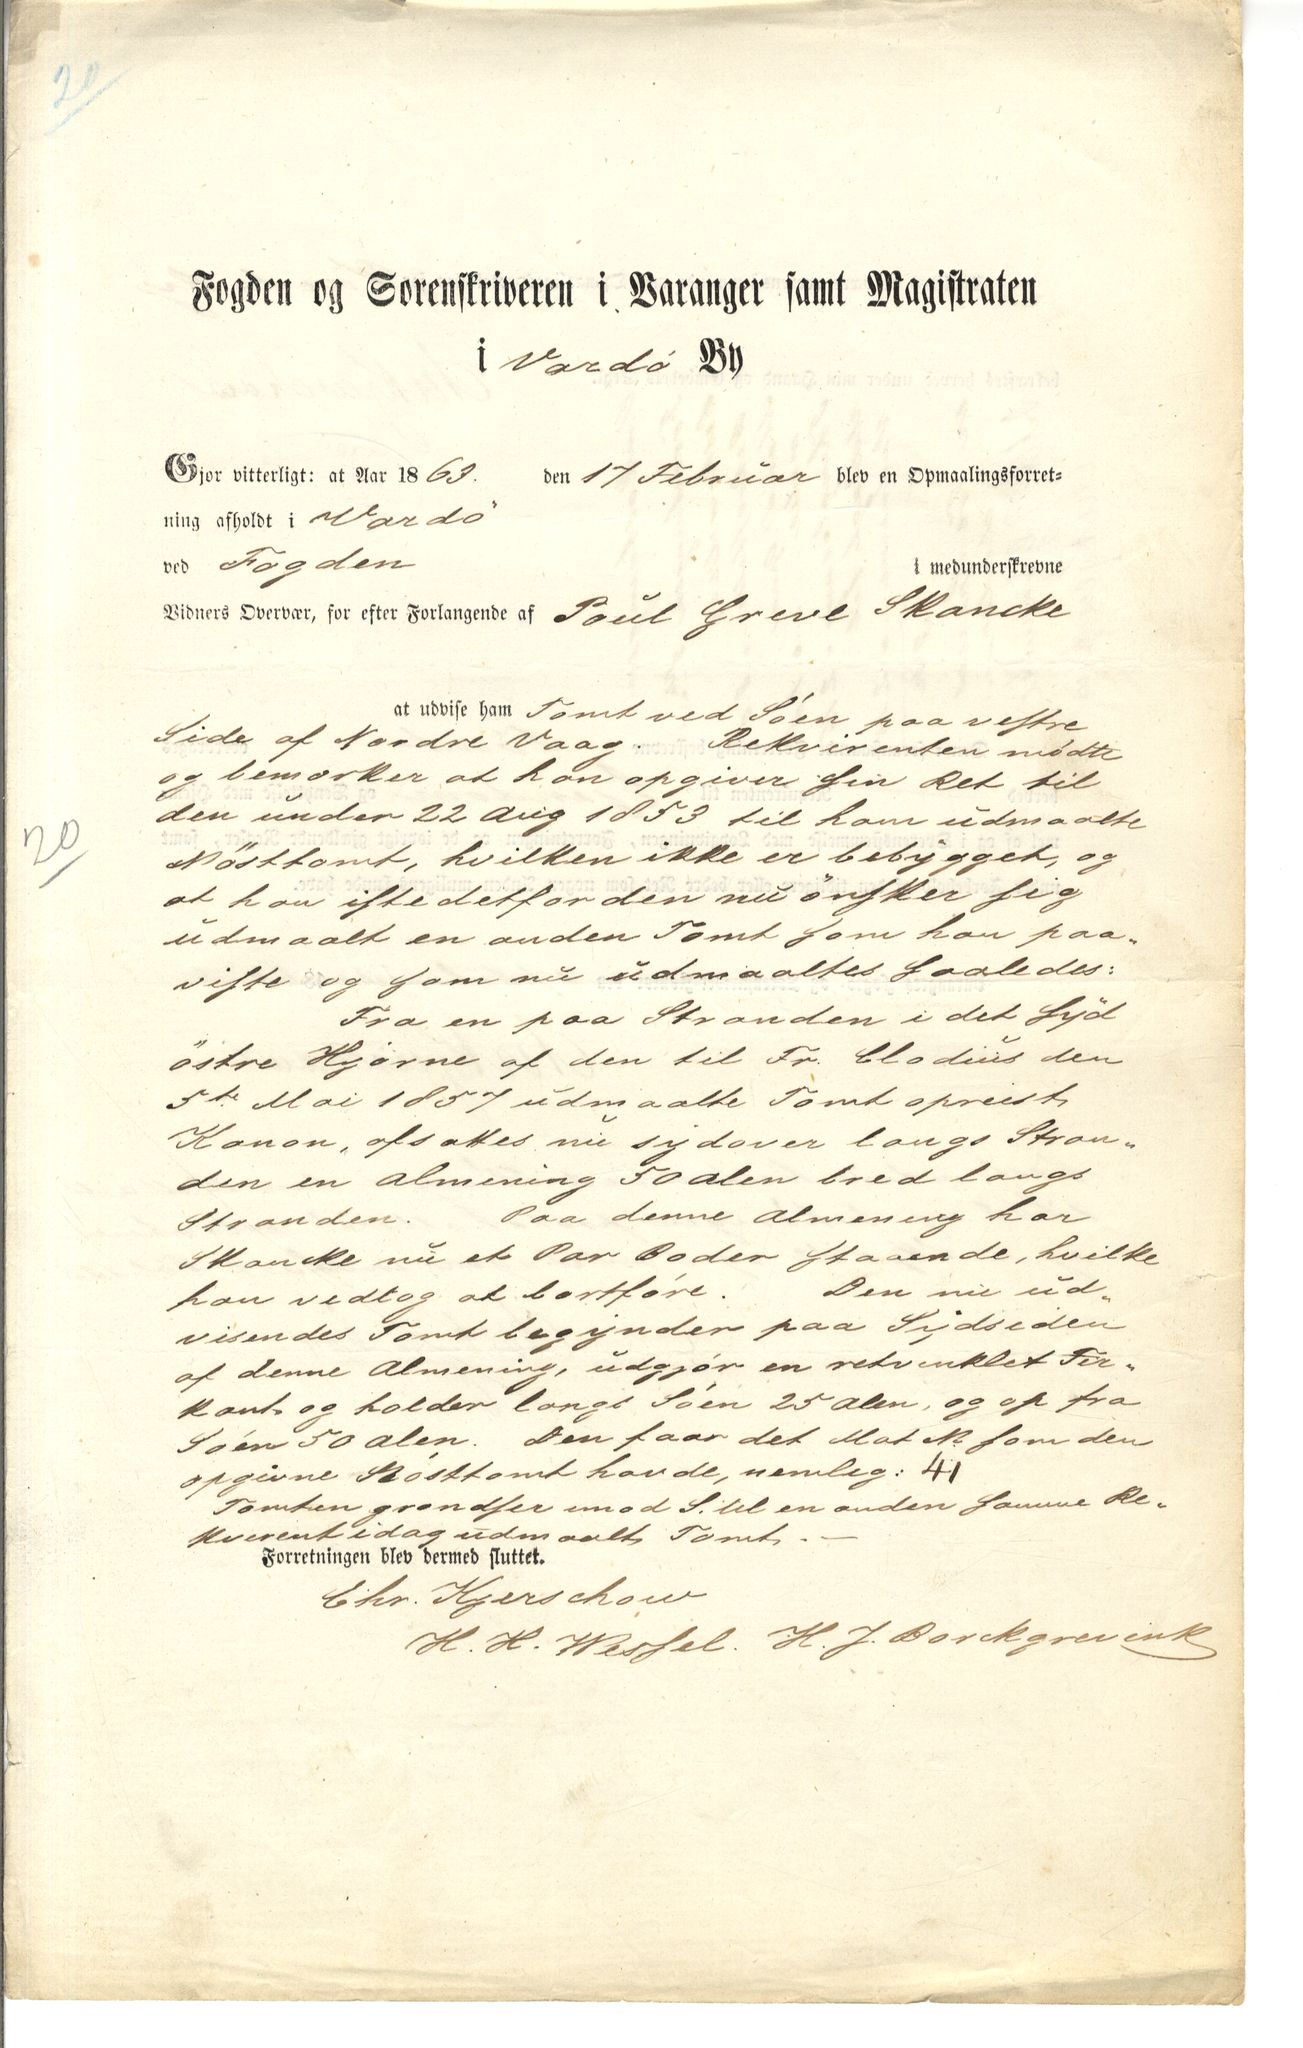 20
Fogden og Sorenskriveren i Varanger samt Magistraten
i Vardö By
Gjør vitterligt: at Aar 1863. den 17 Februar blev en Opmaalingsforret-
ning afholdt i Vardö
ved Fogden i medunderskrevne
Vidners Overvær, for efter Forlangende af Poul Greve Skancke
at udvise ham Tomt ved Söen paa vestre
Side af Nordre Vaag. Rekvirenten mödte
og bemærker at han opgiver sin Ret til
den under 22 Aug 1853 til ham udmaalte
20
Nösttomt, hvilken ikke er bebygget, og
at han istedetfor den nu önsker sig
udmaalt en anden Tomt som han paa-
viste og som nu udmaaltes saaledes:
Fra en paa Stranden i det Syd
östre Hjørne af den til Fr. Clodius den
5te Mai 1857 udmaalte Tomt opreist
Kanon, afsattes nu sydover langs Stran-
den en Almening 50 Alen bred langs
Stranden. Paa denne Almening har
Skancke nu et Par Boder staaende, hvilke
han vedtog at bortföre. Den nu ud-
visendes Tomt begynder paa Sydsiden
af denne Almening, udgjör en retvinklet Fir-
kant og holder langs Söen 25 Alen, og op fra
Söen 50 Alen. Den faar det Mat No som den
opgivne Nösttomt havde, nemlig: 41
Tomten grændser mod S. til en anden samme Re-
kvirent idag udmaalt Tomt. —
Forretningen blev dermed sluttet.
Chr. Kjerschow
H. H. Wessel. H. J. Borckgrevink